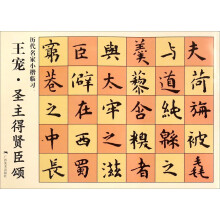 历代名家小楷临习
王宠·圣主得贤臣颂
夫荷旃被毳
與道純綿之
羹藜含糗者
與太牢之滋
臣僻在西蜀
窮巷之中長